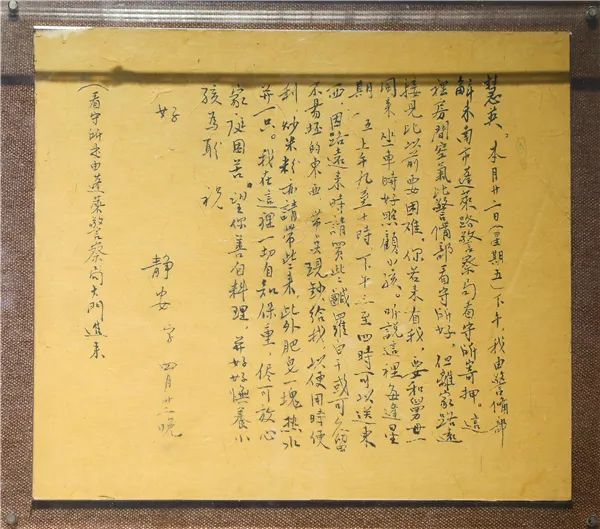 慧英。本月廿二日(星期五)下午,我由警備部
解来南市蓬萊路警察局看守所寄押。這
裡房間空氣比警備部看守所好,但離家路遠
接見比以前要困難。你若来看我,要和舅母
同来,坐車時好照顧小孩。听説這裡每逢星
期一、五上午九至十時,下午三至四時可以送東
西,因路遠来時請買些鹹羅白干或可久留
不易壞的東西,帶點現鈔給我,以便用時便
利,炒米粉亦請帶些来,此外肥皂一塊,热水
瓶一只。我在這裡一切自知保重,侭可放心
家庭困苦。望你善自料理,并好好撫養小
孩為盼 祝
好
静安 字 四月廿二晚
(看守所是由蓬萊警察局大門進来